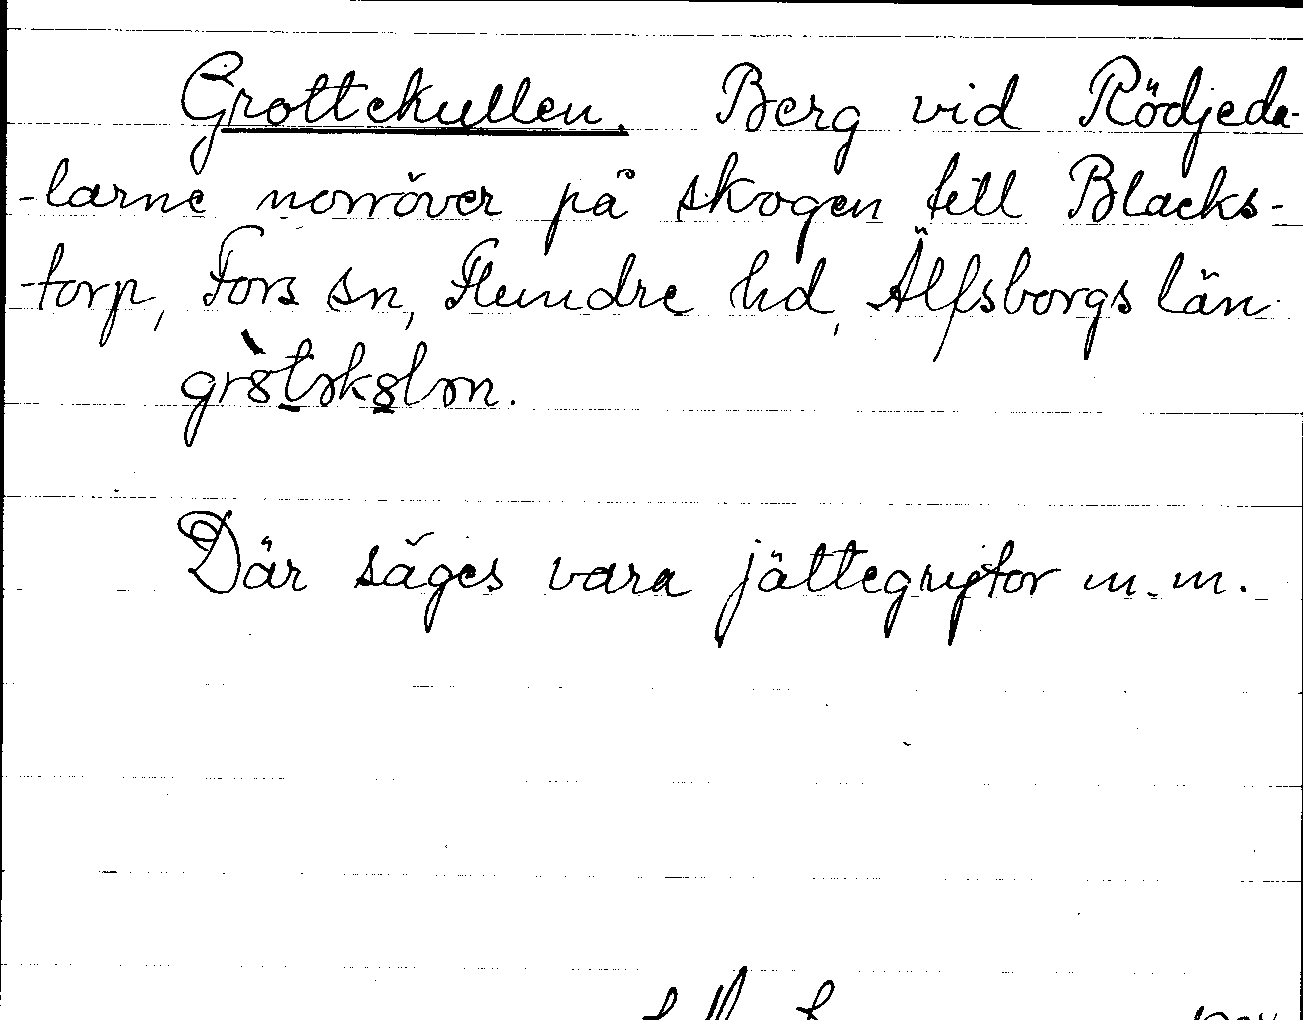 Grottekullen. Berg vid Rödjeda-
-larne norröver på skogen till Blacks-
-torp, Fors sn, Flundre hd, Älfsborgs län.
Där säges vara jättegrytor m.m.